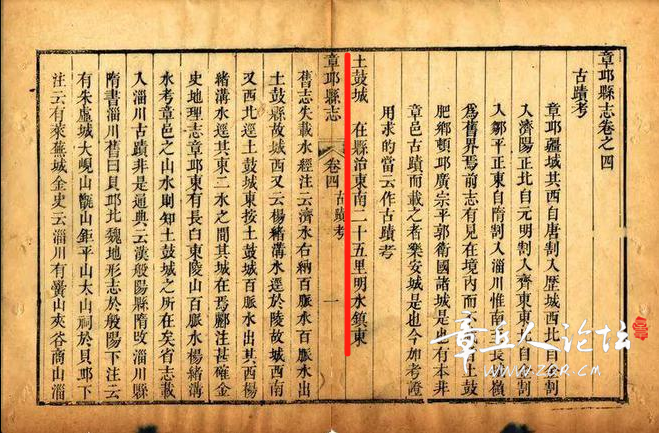 章邱縣志卷之四
古蹟考
章邱疆域其西自唐割入歷城西北自金割
入濟陽正北自元明割入齊東東北自
入鄒平正東自隋割入淄川惟南
為舊界焉前志有見在境內而
肥鄉頓邱廣宗平郭衛國諸城是
章邑古蹟而載之者樂安城是也今加考證
用求的當云作古蹟考
土鼓城 在縣治東南二十五里明水鎮東
章邱縣志 卷四 古蹟考 一
舊志失載水經注云濟水右納百脈水百脈水出
土鼓縣故城西又云楊緒溝水逕於陵故城西南
又西北逕土鼓城東按土鼓城百脈水出其西楊
緒溝水逕其東二水之間其城在焉酈注甚確金
史地理志章邱東有長白東陵山百脈水楊緒溝
水考章邑之山水則知土鼓城之所在矣省志載
入淄川古蹟非是通典云漢般陽縣隋改淄川縣
隋書淄川舊曰貝邱北魏地形志於般陽下注云
有朱虛城大峴山 山鉅平山太山祠於貝邱下
注云有萊蕪城金史云淄川有 山夾谷商山淄
章丘人论坛
www.zqr.com